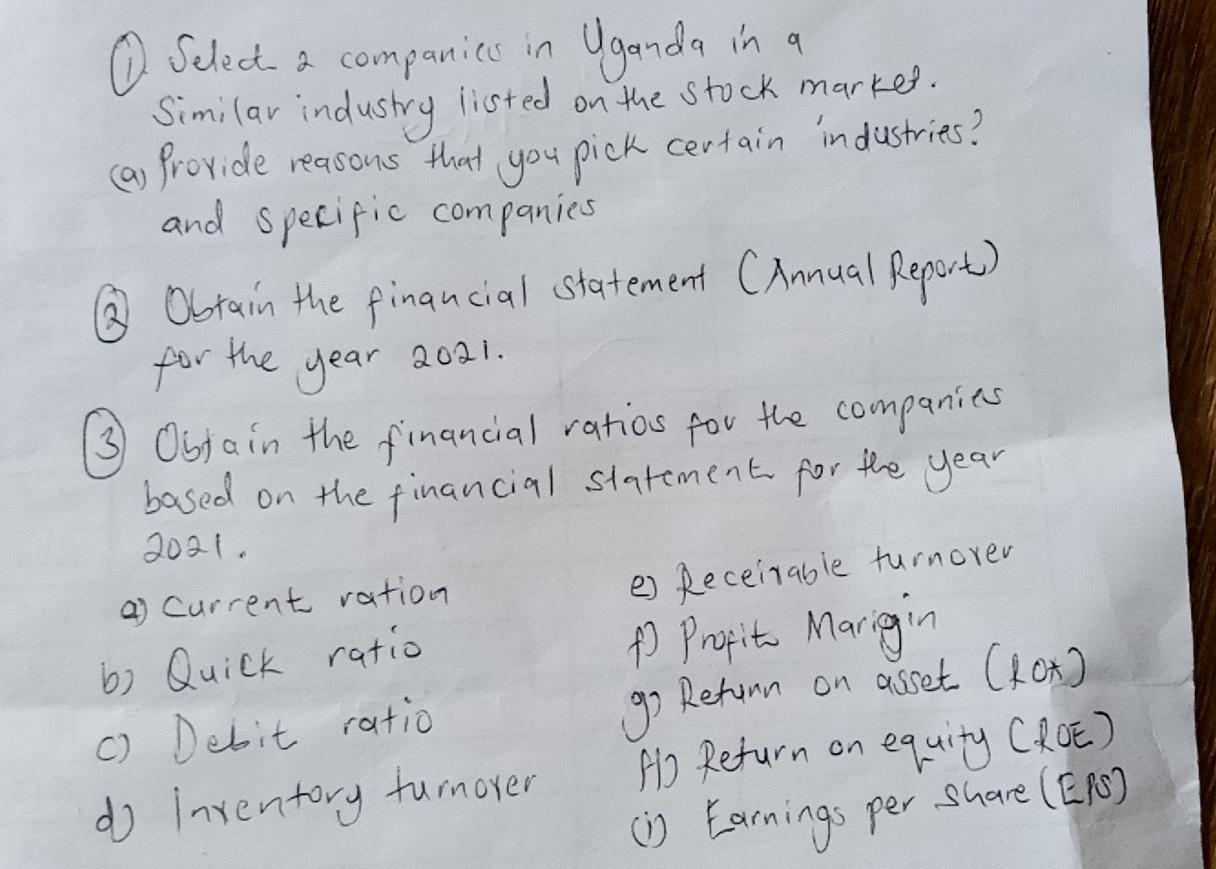 ① Select 2 companies in Uganda in a
Similar industry listed on the stock market.
(a) Provide reasons that you pick certain industries?
and specific companies
② Obtain the financial statement (Annual Report)
for the year 2021.
③ Obtain the financial ratios for the companies
based on the financial statement for the year
2021.
a) Current ration
b) Quick ratio
c) Debit ratio
d) Inventory turnover
e) Receivable turnover
f) Profit Marigin
g) Return on asset (ROA)
H) Return on equity (ROE)
(i) Earnings per share (EPS)